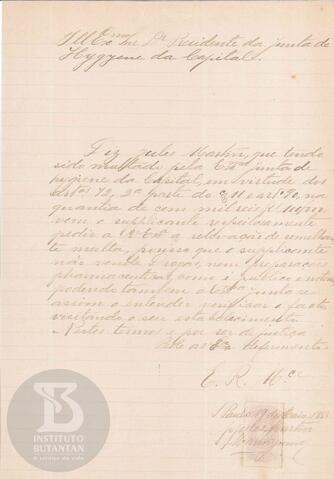 Ill Exmo Snr Dr Presidente da junta de
Hygyene da Capital.
Diz Jules Martin, que tendo
sido multado pela Exma junta de
hygiene da Capital, em virtude dos
2a parte do
quantia de cem mil reis
vem o supplicante respeitosamente
pedir a V Exa a relevação de semelhan
te multa, porque que o supplicante
não vende drogas, nem preparações
pharmaceuticas, como é publico e notorio
podendo tambem a Exma junta se
assim o entender verificar o facto
visitando o seu estabelecimento
Nestes termos e por ser de justiça
Deferimento.
E. R. Mce
S. Paulo 19 de
Jules Martin
INSTITUTO
BUTANTAN
A serviço da vida